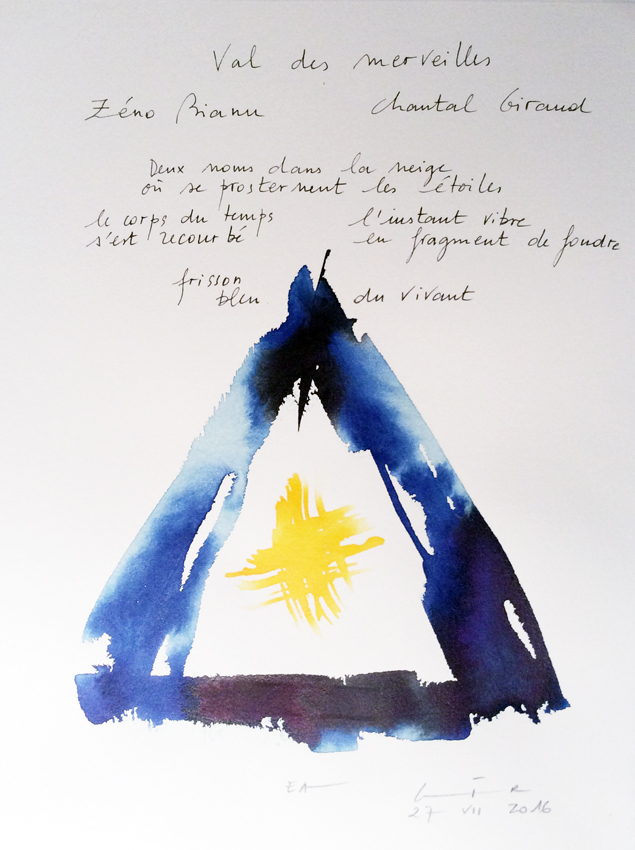 Val des merveilles
Zéno Bianu Chantal Giraud
Deux noms dans la neige
où se prosternent les étoiles
le corps du temps l'instant vibre
s'est recourbé en fragment de foudre
frisson
bleu du vivant
EA
27 VII 2016